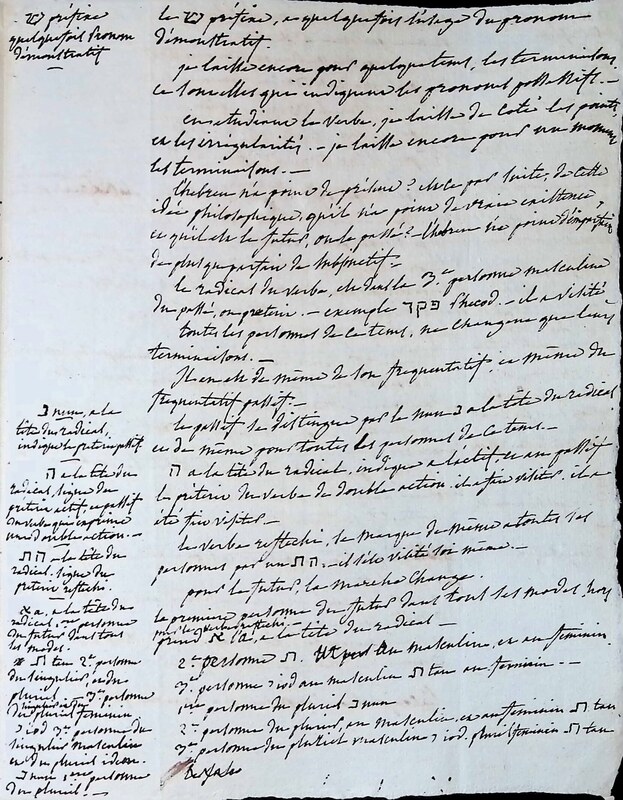 - ש préfixe
quelquefois pronom
démonstratif
le ש préfixe, a quelquefois l'usage du pronom
démonstratif.
je laisse encore pour quelque tems, les terminaisons
ce sont elles qui indiquent les pronoms possessifs. -
en étudiant le verbe, je laisse de coté les points,
et les irrégularités. - je laisse encore pour un moment
les terminaisons. -
l'hébreu n'a point de présent? est ce par suite, de cette
idée philosophique, qu'il n'a point de vraie existence,
et qu'il est le futur, ou le passé? - l'hébreu n'a point d'imparfait
de plus que parfait de subjonctif. -
le radical du verbe, est dans la 3.e personne masculine
du passé, ou préterit. - exemple פקד Phecod. - il a visité
toutes les personnes de ce tems, ne changent que leurs
terminaisons. -
Il en est de même de son fréquentatif, et même du
fréquentatif passif. -
le passif se distingue par le nun נ a la tête du radical
et de même pour toutes les personnes de ce tems. -
ה a la tête du radical, indique a l'actif et au passif
le préterit du verbe de double action. il a fait visiter, il a
été fait visiter. -
le verbe réfléchi, se marque de même a toutes ses
personnes par un הת - il s'est visité soi même. -
pour le futur, la marche change.
la premiere personne du futur dans tout ses modes, hors
pour le verbe réfléchi -
prend א a, a la tête du radical -
2.e personne ת. au masculin, et au féminin
3.e personne י iod au masculin ת tau au féminin. -
1.re personne du pluriel נ nun
2.e personne du pluriel, au masculin, et au féminin ת tau
3.e personne du pluriel masculin י iod. pluriel féminin ת tau
נ nun, a la
tête du radical,
indique le préterit passif
ה a la tête du
radical, signe du
préterit actif et passif
du verbe qui exprime
une double action. -
הת - la tête du
radical. signe du
préterit réfléchi.
א a, a la tête du
radical, 1.re personne
du futur dans tous
les modes.
ת tau 2.e personne
du singulier, et du
pluriel - 3.e personne
du pluriel féminin
י iod 3.e personne du
singulier masculin
et du pluriel idem.
נ nun 1.re personne
du pluriel. -